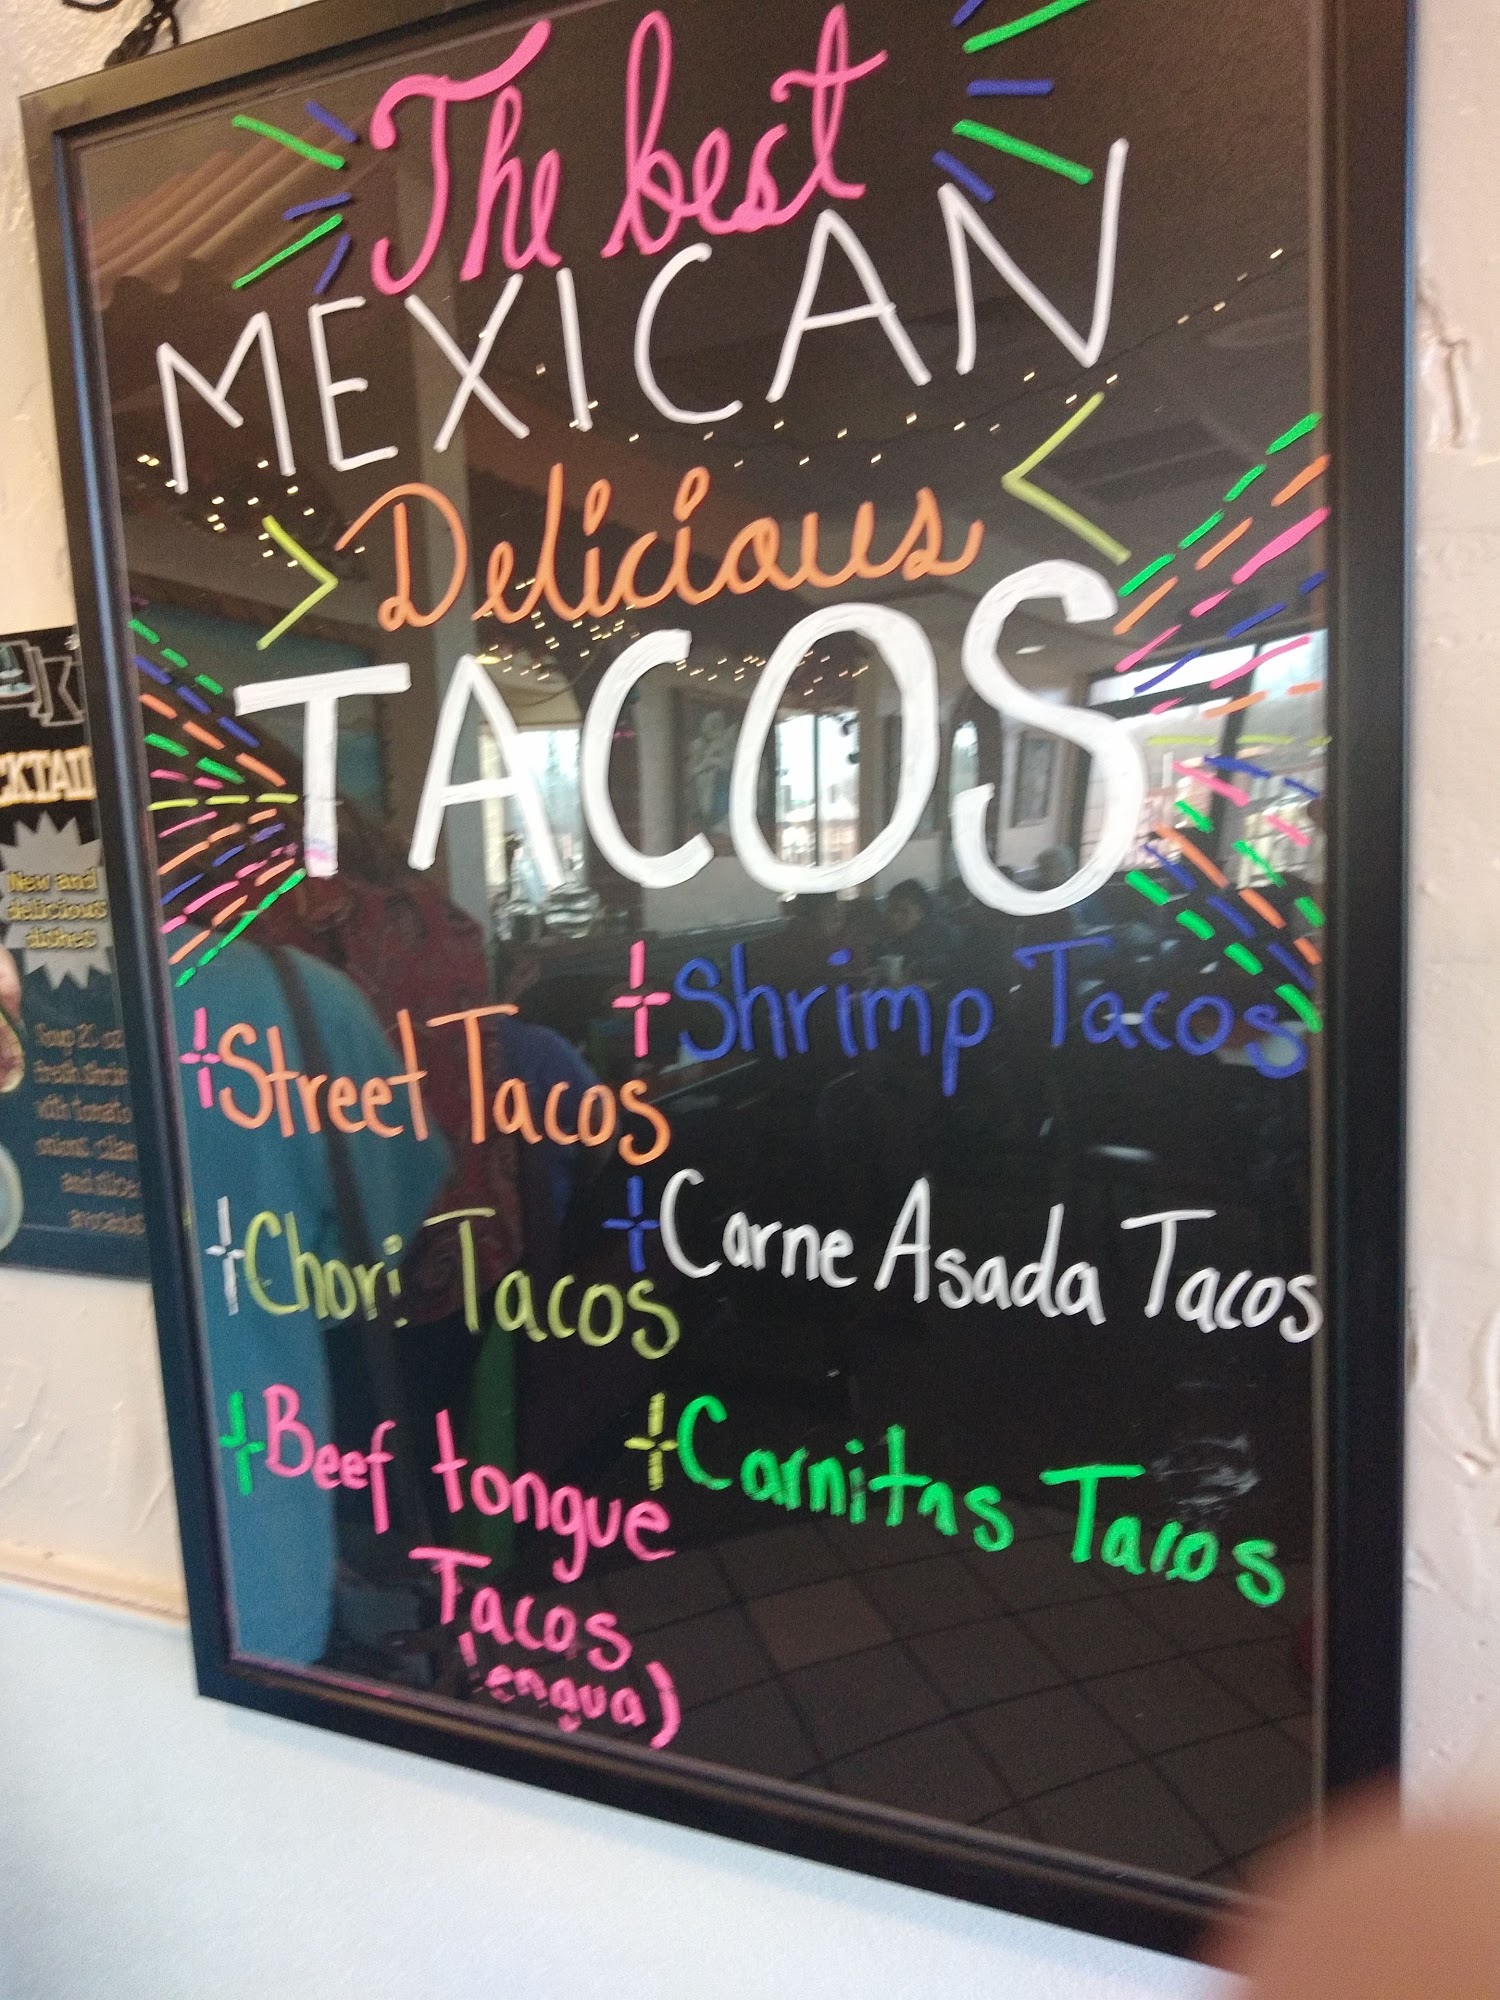 The best
MEXICAN
Delicious
TACOS
Street Tacos
Shrimp Tacos
Chori Tacos
Carne Asada Tacos
Beef tongue
Tacos
Lengua)
Carnitas Tacos
CKTAIL
New and
delicious
dishes
Soup 21 oz
fresh shrim
with tomato
onions, cilan
and slice
avocados